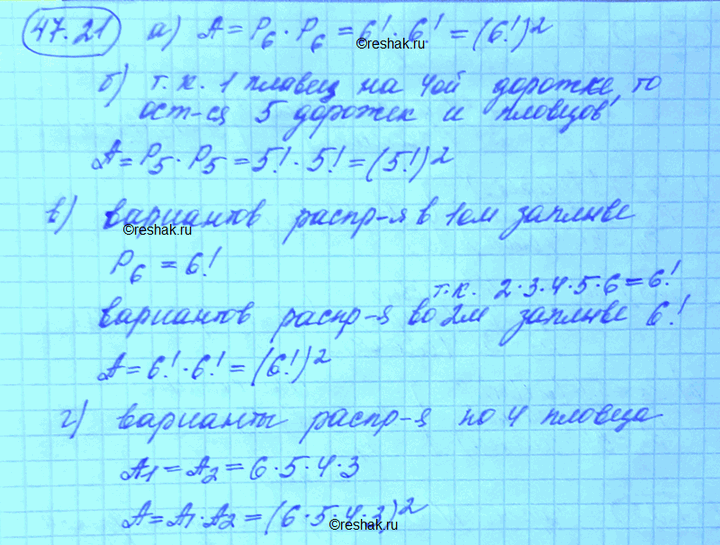 47.21 а) A = P₆ · P₆ = 6! · 6! = (6!)²
©reshak.ru
б) т.к. 1 пловец на 4ой дорожке, то
ост-ся 5 дорожек и пловцов
A = P₅ · P₅ = 5! · 5! = (5!)²
в) вариантов распр-я в 1ом заплыве
©reshak.ru
P₆ = 6!
т.к. 2·3·4·5·6 = 6!
вариантов распр-я во 2м заплыве 6!
A = 6! · 6! = (6!)²
г) варианты распр-я по 4 пловца
A₁ = A₂ = 6·5·4·3
A = A₁ · A₂ = (6·5·4·3)²
©reshak.ru